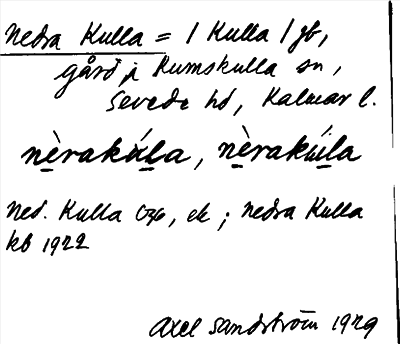 Nedra Kulla = 1 Kulla 1 jb,
gård i Rumskulla sn,
Sevede hd, Kalmar l.
nèrakúla, nèrakúla
Ned. Kulla ek; Nedra Kulla
kb 1922
Axel Sandström 1929